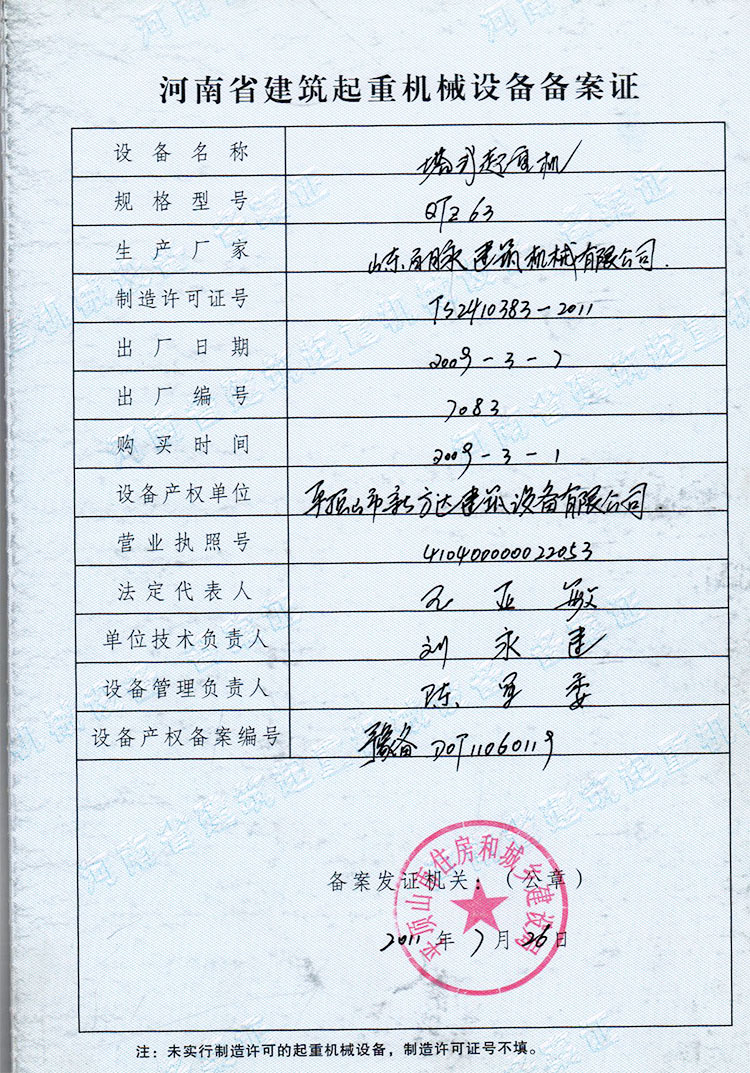 河南省建筑起重机械设备备案证
设备名称 塔式起重机
规格型号 QTZ63
生产厂家 山东 建筑机械有限公司.
制造许可证号 TS2410383-2011
出厂日期 2009-3-7
出厂编号 7083
购买时间 2009-3-1
设备产权单位 平顶山市新方达建筑设备有限公司.
营业执照号 410400000022053
法定代表人 亚敏
单位技术负责人 刘永建
设备管理负责人 陈军委
设备产权备案编号 豫备D0T11060119
平顶山市住房和城乡建设局
备案发证机关：（公章）
2011年7月26日
注：未实行制造许可的起重机械设备，制造许可证号不填。